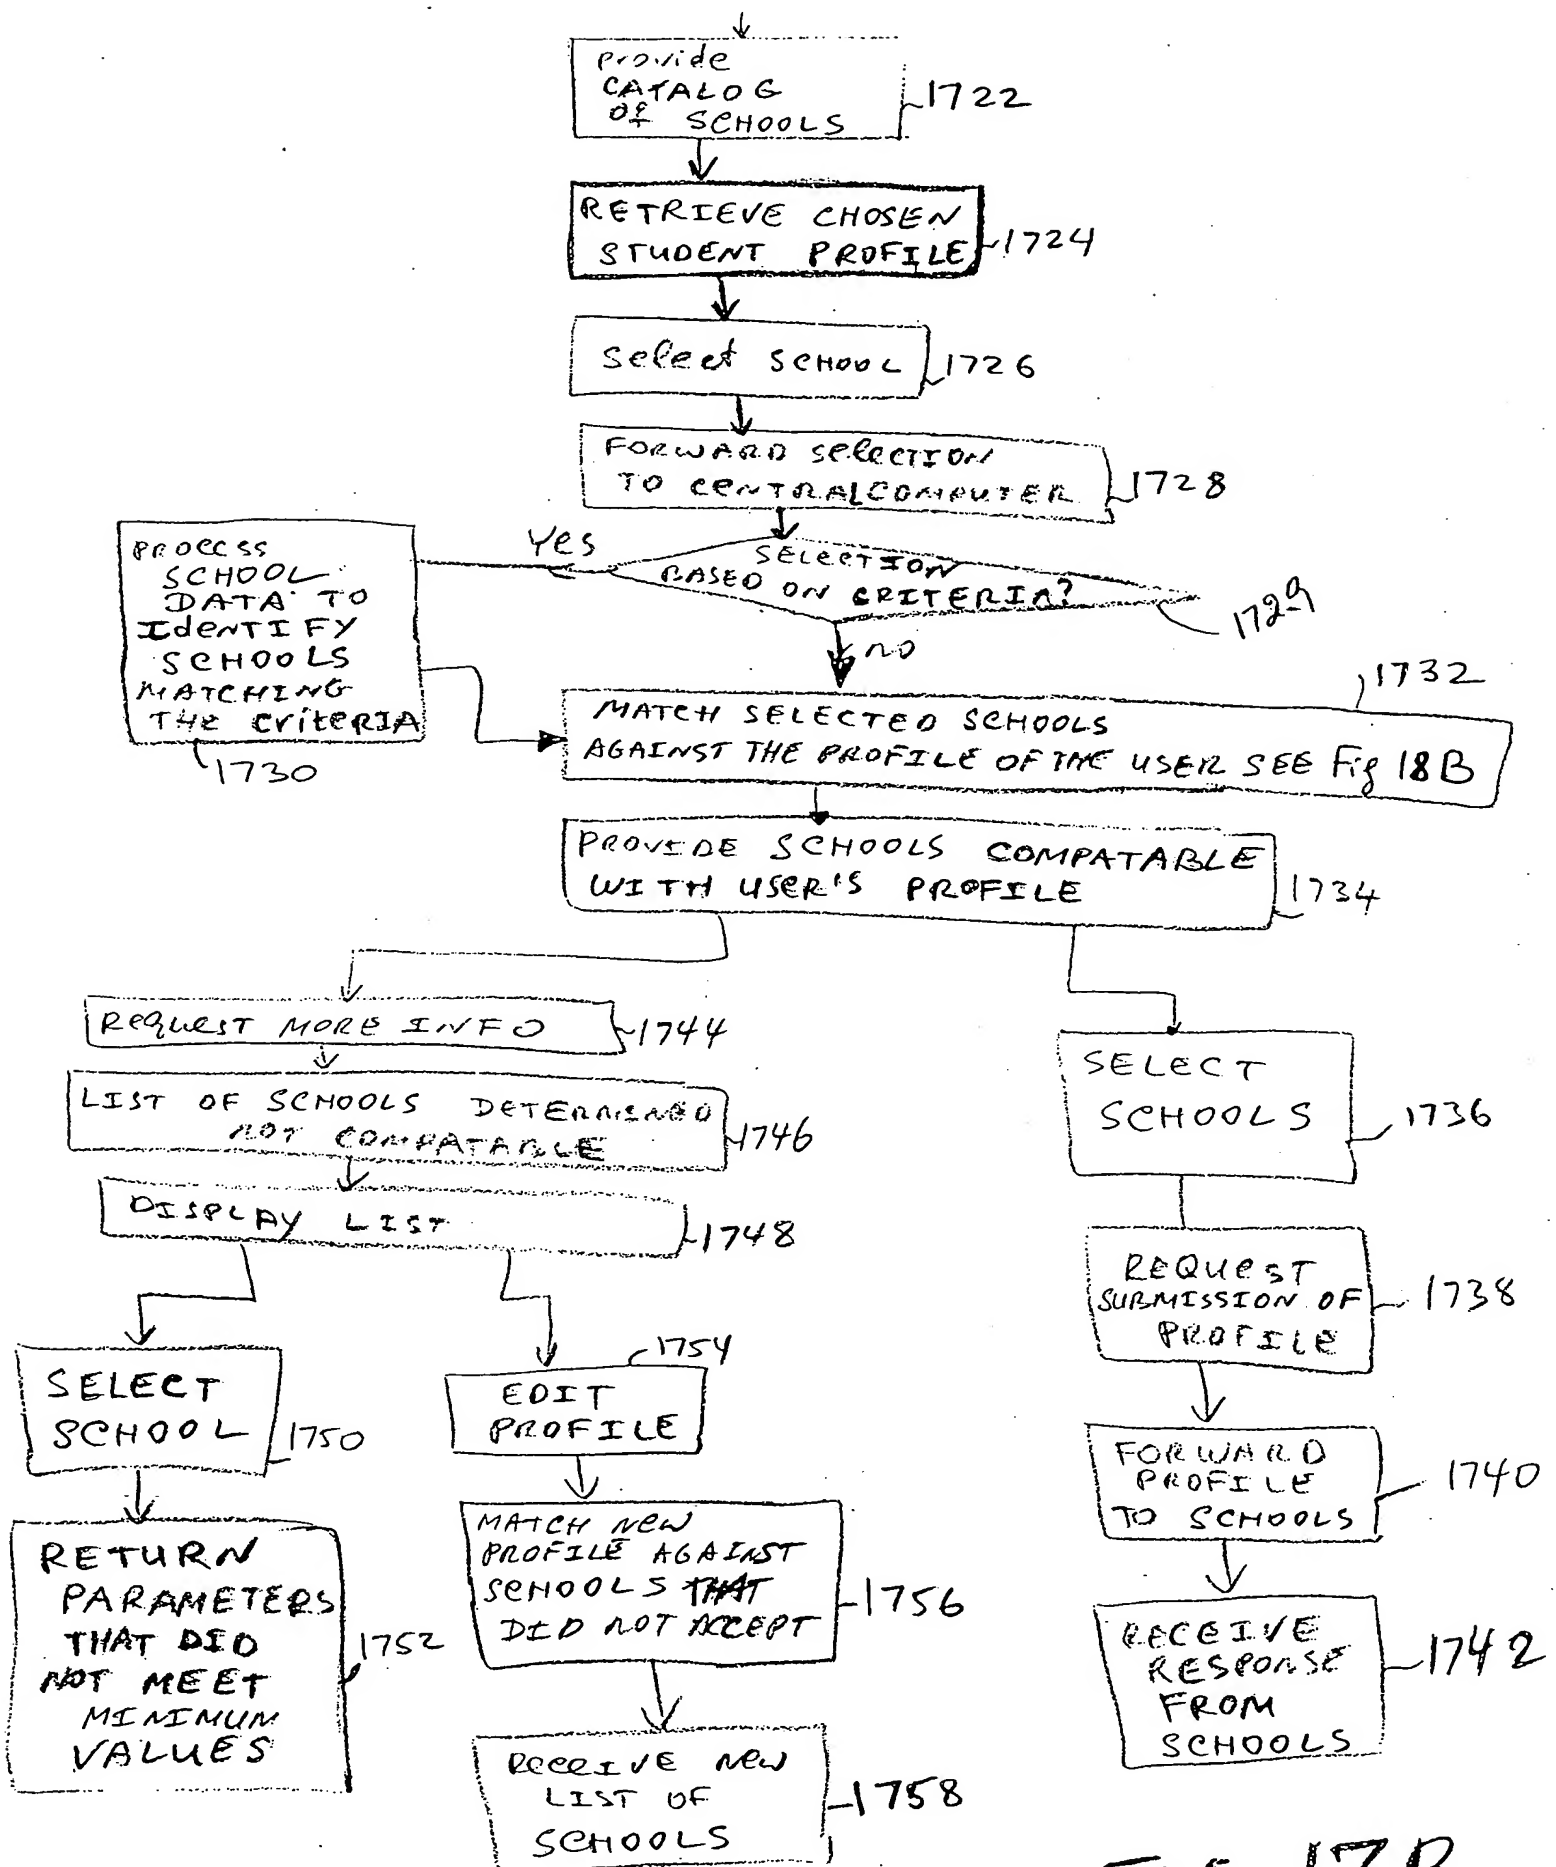 provide
CATALOG
OF SCHOOLS
1722
RETRIEVE CHOSEN
STUDENT PROFILE
1724
Select SCHOOL
1726
FORWARD SELECTION
TO CENTRAL COMPUTER
1728
SELECTION
BASED ON CRITERIA?
1729
Yes
NO
PROCESS
SCHOOL
DATA TO
IdENTIFY
SCHOOLS
MATCHING
THE CriteRIA
1730
1732
MATCH SELECTED SCHOOLS
AGAINST THE PROFILE OF THE USER SEE Fig 18B
PROVIDE SCHOOLS COMPATABLE
WITH USER'S PROFILE
1734
REQUEST MORE INFO
1744
LIST OF SCHOOLS DETERMINED
NOT COMPATABLE
1746
DISPLAY LIST
1748
SELECT
SCHOOL
1750
RETURN
PARAMETERS
THAT DID
NOT MEET
MINIMUM
VALUES
1752
1754
EDIT
PROFILE
MATCH NEW
PROFILE AGAINST
SCHOOLS THAT
DID NOT ACCEPT
1756
RECEIVE NEW
LIST OF
SCHOOLS
1758
SELECT
SCHOOLS
1736
REQUEST
SUBMISSION OF
PROFILE
1738
FORWARD
PROFILE
TO SCHOOLS
1740
RECEIVE
RESPONSE
FROM
SCHOOLS
1742